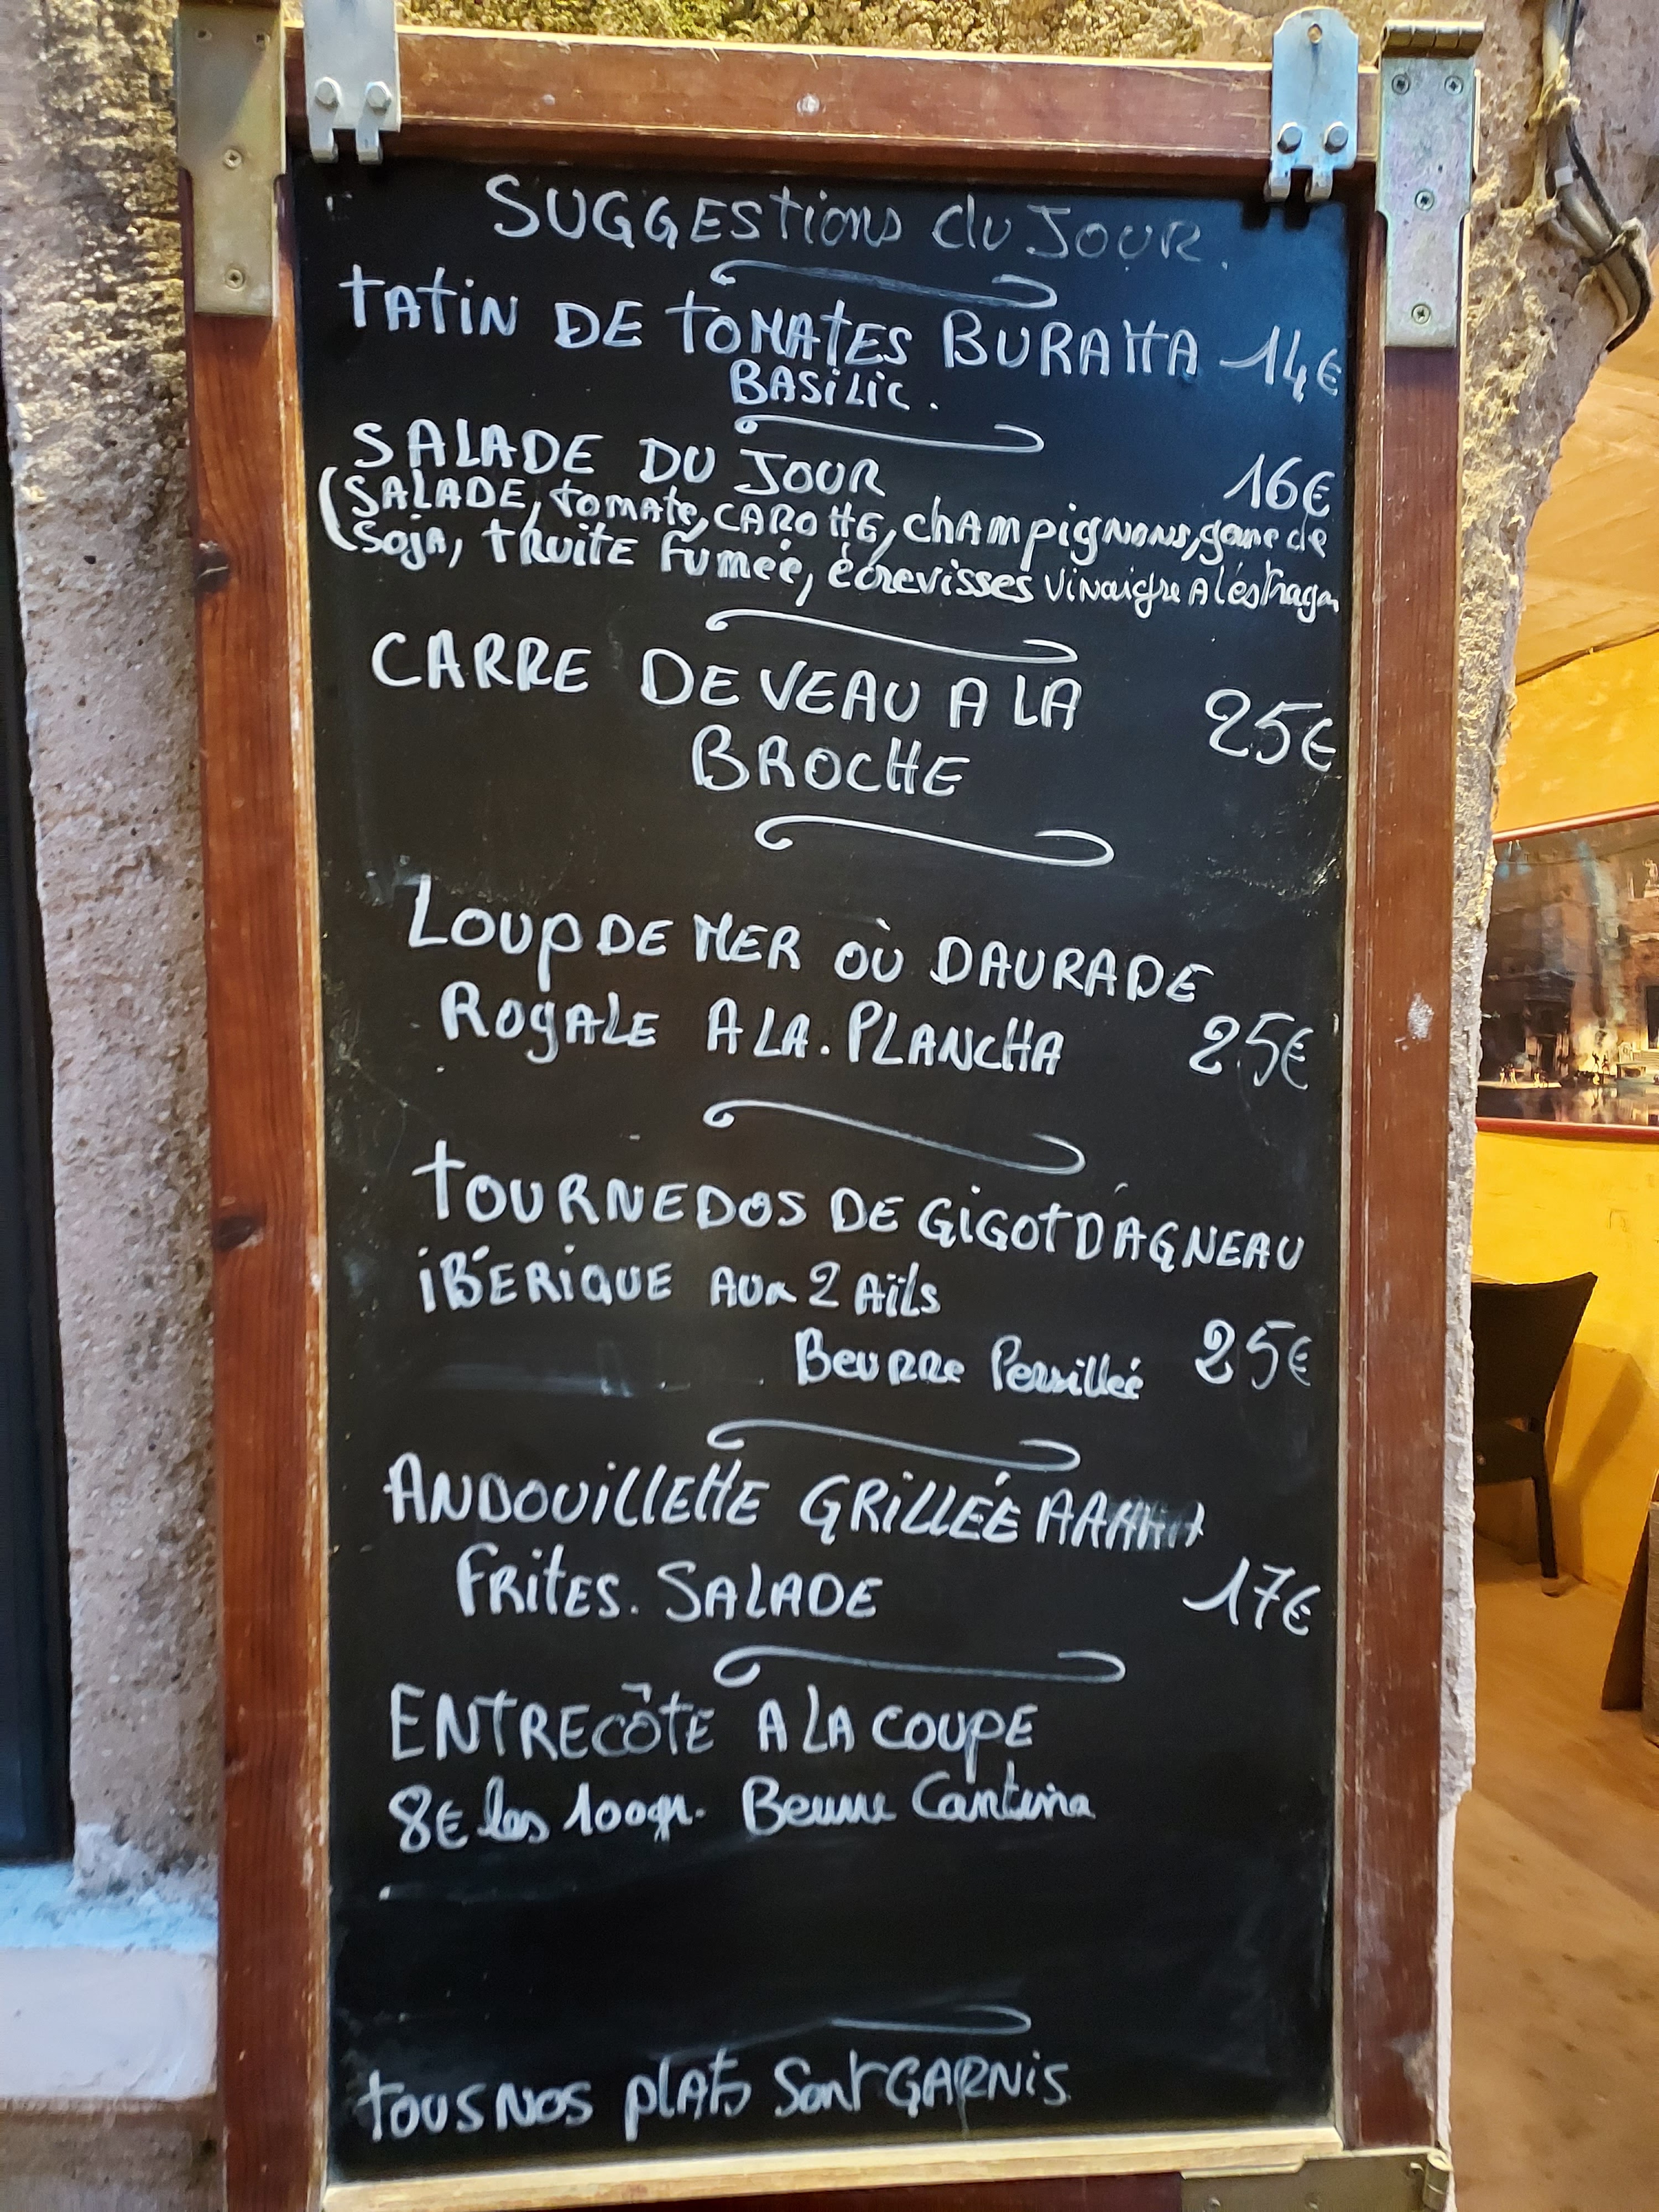 SUGGEStions du JOUR.
tAtiN DE tOMAtES BURAttA 14€
BASiLic.
SALADE DU JOUR 16€
(SALADE, tomate, CAROttE, chAmpigNoNs, gane de
Soja, truite Fumée, écrevisses ViNaigre A l'estragon
CARRE DE VEAU A LA
BROCHE 25€
Loup DE MER OÙ DAURADE
RoyALE A LA. PLANCHA 25€
tOURNEDOS DE GiGOt D'AGNEAU
iBÉRiQUE AUx 2 Aïls
Beurre Persillée 25€
ANDOUillEttE GRiLLÉE AAAAA
FRitES. SALADE 17€
ENTRECÔtE A LA COUPE
8€ les 100gr. Beurre Cantina
tOUS NOS plAts Sont GARNiS